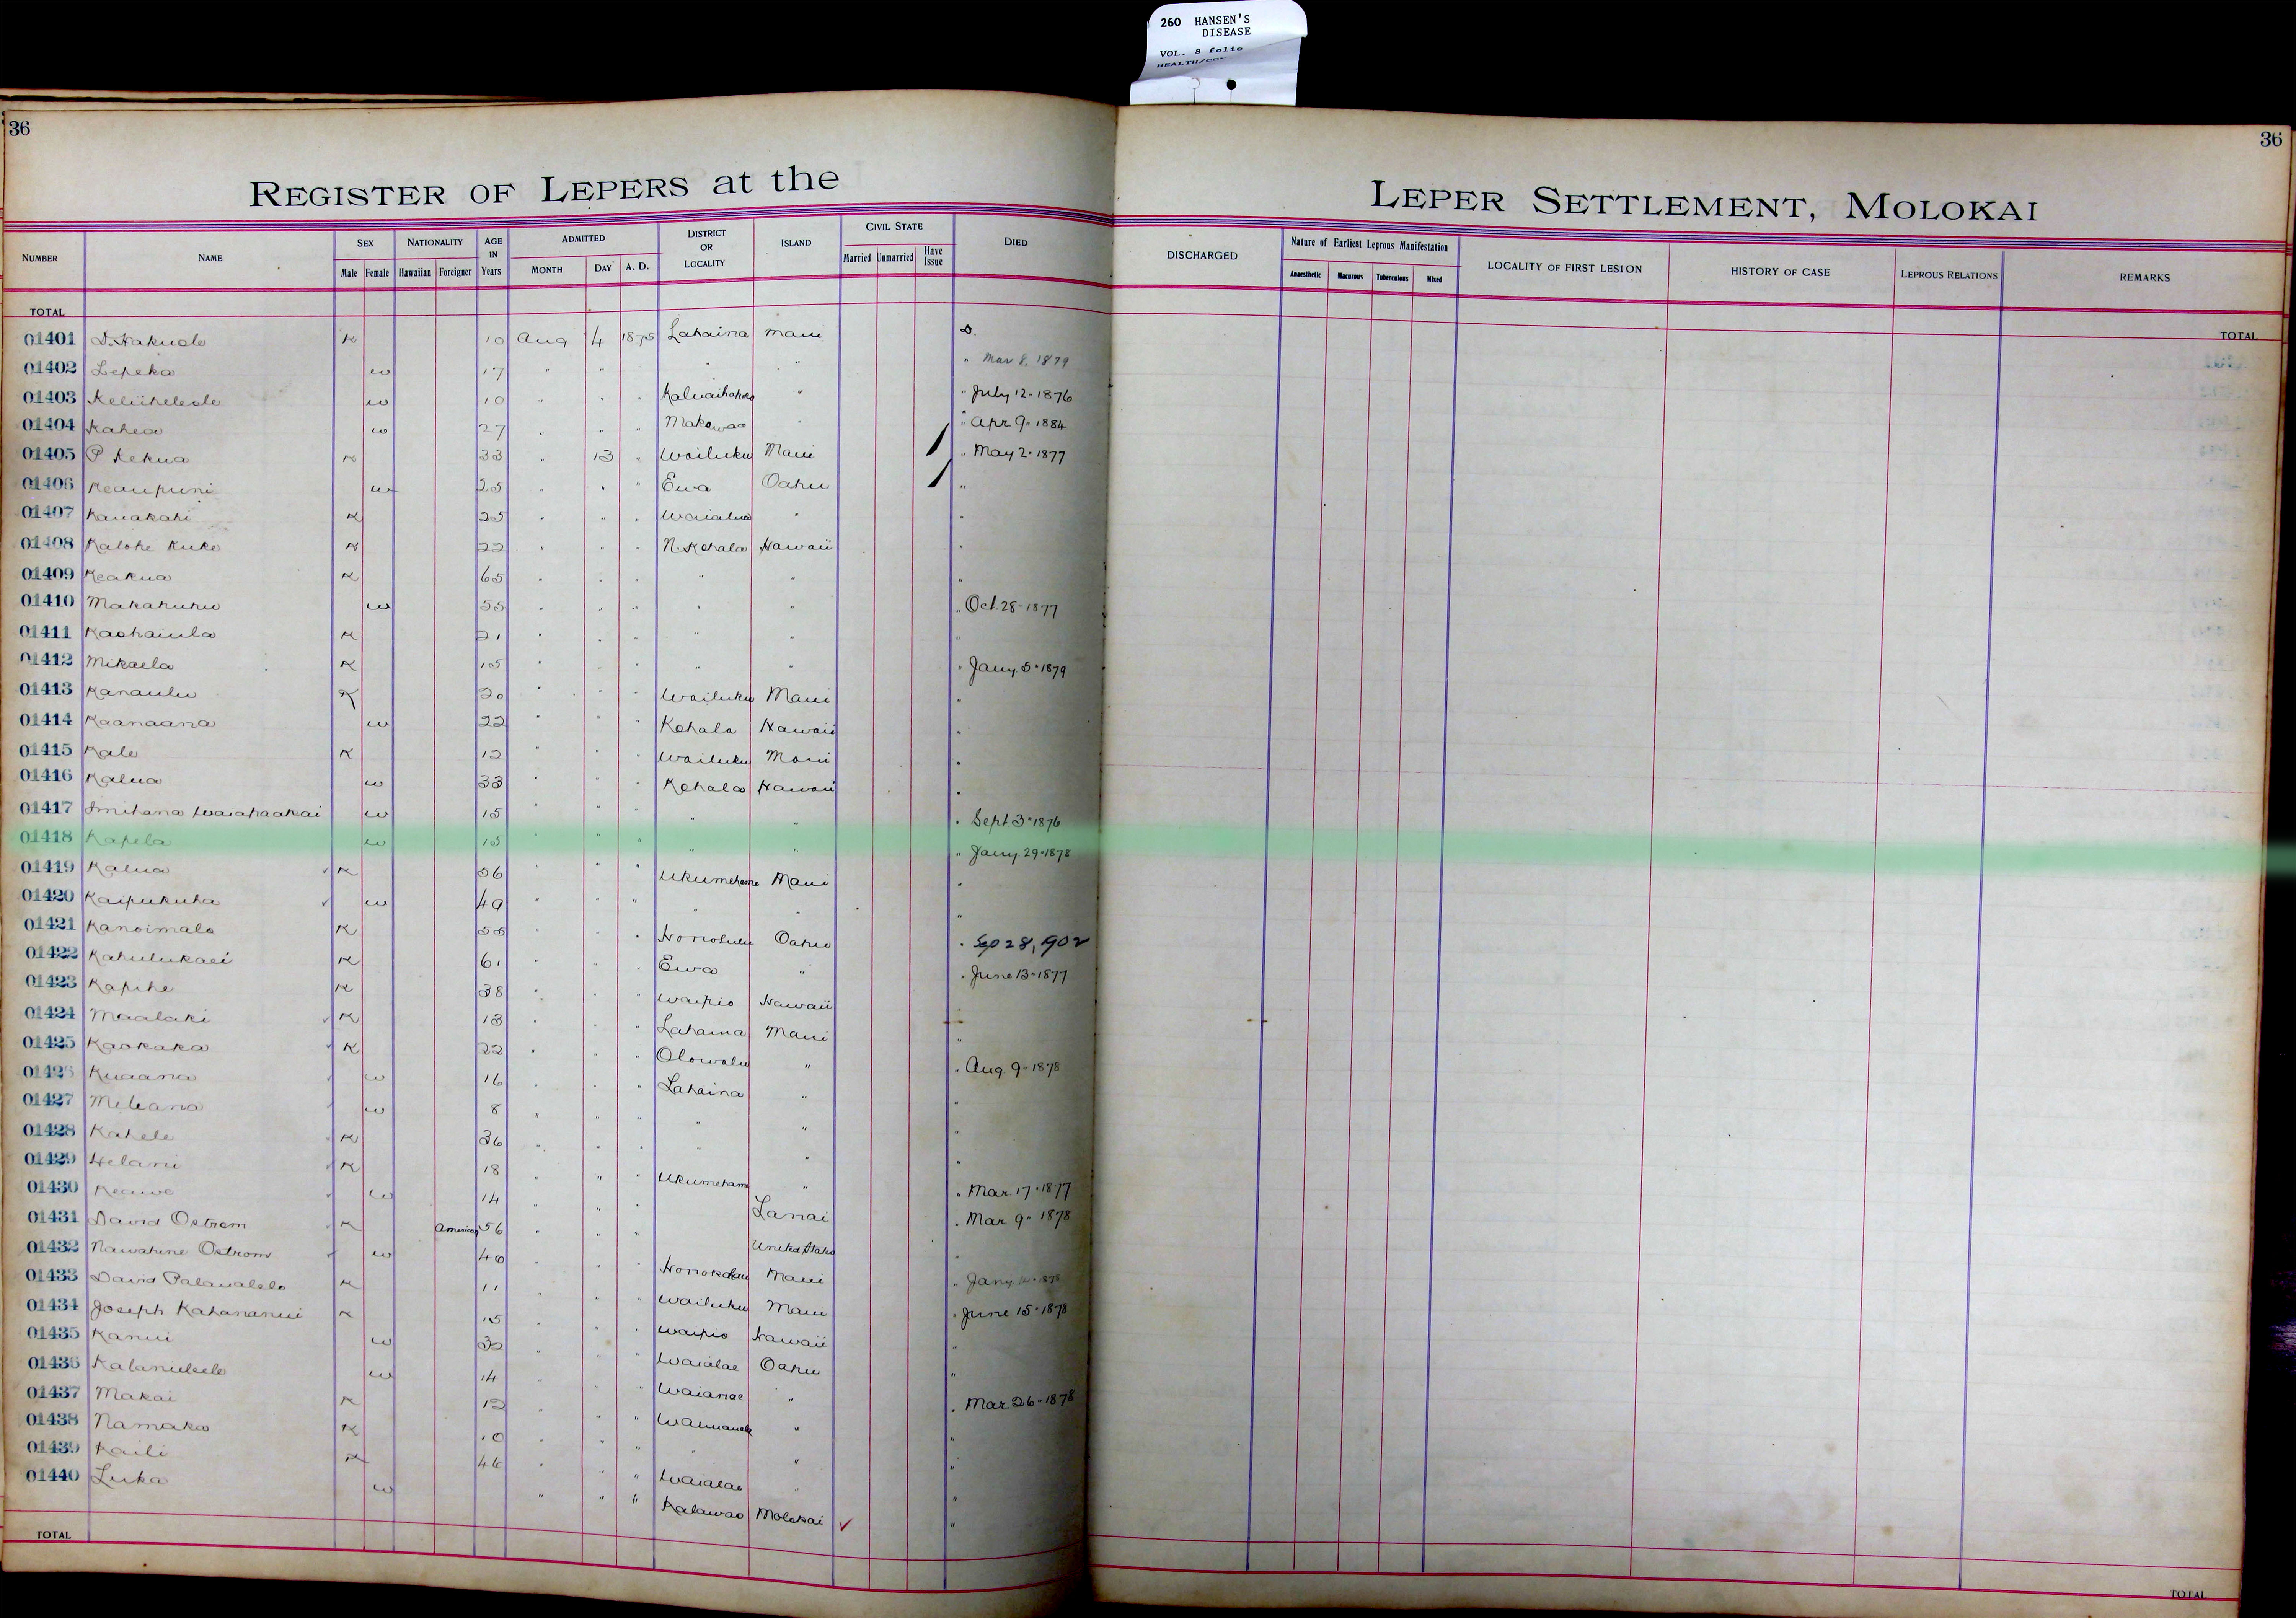 260 HANSEN'S
DISEASE
VOL. 8 folio
36
36
REGISTER OF LEPERS at the LEPER SETTLEMENT, MOLOKAI
NUMBER NAME SEX Male Female NATIONALITY Hawaiian Foreigner AGE IN Years ADMITTED MONTH DAY A. D. DISTRICT OR LOCALITY ISLAND CIVIL STATE Married Unmarried Have Issue DIED DISCHARGED Nature of Earliest Leprous Manifestation Anaesthetic Macurous Tuberculous Mixed LOCALITY OF FIRST LESION HISTORY OF CASE LEPROUS RELATIONS REMARKS
TOTAL TOTAL
01401 D. Hakuole K 10 Aug 4 1875 Lahaina Maui D.
01402 Lepeka w 17 " " " " " " Mar 8, 1879
01403 Keliiheleole w 10 " " " " " July 12-1876
01404 Kahea w 27 " " " Makawao " " Apr 9-1884
01405 P Kekua K 33 " 13 " Wailuku Maui " May 2-1877
01406 Keaupuni w 25 " " " Ewa Oahu "
01407 Kanakahi K 25 " " " Waialua " "
01408 Kalohe Kuke K 22 " " " N. Kohala Hawaii "
01409 Keakua K 65 " " " " " "
01410 Makahuhu w 55 " " " " " " Oct. 28-1877
01411 Kaohaiula K 21 " " " " " "
01412 Mikaela K 15 " " " " " " Jany 5-1879
01413 Kanaulu K 20 " " " Wailuku Maui "
01414 Kaanaana w 22 " " " Kohala Hawaii "
01415 Kale K 12 " " " Wailuku Maui "
01416 Kalua w 33 " " " Kohala Hawaii "
01417 Smihana Waiahaakai w 15 " " " " " " Sept. 3-1876
01418 Kapela w 15 " " " " " " Jany. 29-1878
01419 Kalua K 56 " " " Ukumehame Maui "
01420 Kaipukuha w 49 " " " " " "
01421 Kanoimalo K 55 " " " Honolulu Oahu " Sep 28, 1902
01422 Kahulukaei K 61 " " " Ewa " " June 13-1877
01423 Kapihe K 38 " " " Waipio Hawaii
01424 Maalaki K 13 " " " Lahaina Maui "
01425 Kaokaka K 22 " " " Olowalu " " Aug. 9-1878
01426 Kuaana w 16 " " " Lahaina " "
01427 Meleana w 8 " " " " " "
01428 Kahele K 36 " " " " " "
01429 Helani K 18 " " " Ukumehame " " Mar. 17-1877
01430 Keawe w 14 " " " Lanai " Mar. 9-1878
01431 David Ostrom K American 56 " " " United States "
01432 Nawahine Ostrom w 40 " " " Honokohau Maui " Jany
01433 David Palaualelo K 11 " " " Wailuku Maui " June 15-1878
01434 Joseph Kahananui K 15 " " " Waipio Hawaii "
01435 Kanui w 32 " " " Waialae Oahu "
01436 w 14 " " " Waianae " " Mar. 26-1878
01437 Makai K 12 " " " " "
01438 Namaka K 10 " " " " " "
01439 Kaili K 46 " " " Waialae " "
01440 Luka w " " " Kalawao Molokai "
TOTAL TOTAL